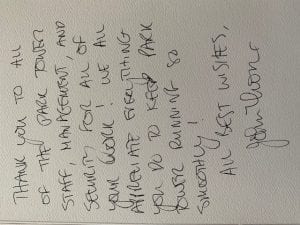 THANK YOU TO ALL
OF THE PARK TOWER
STAFF, MANAGEMENT, AND
SECURITY FOR ALL OF
YOUR WORK! WE ALL
APPRECIATE EVERYTHING
YOU DO TO KEEP PARK
TOWER RUNNING SO
SMOOTHLY!
ALL BEST WISHES,
John